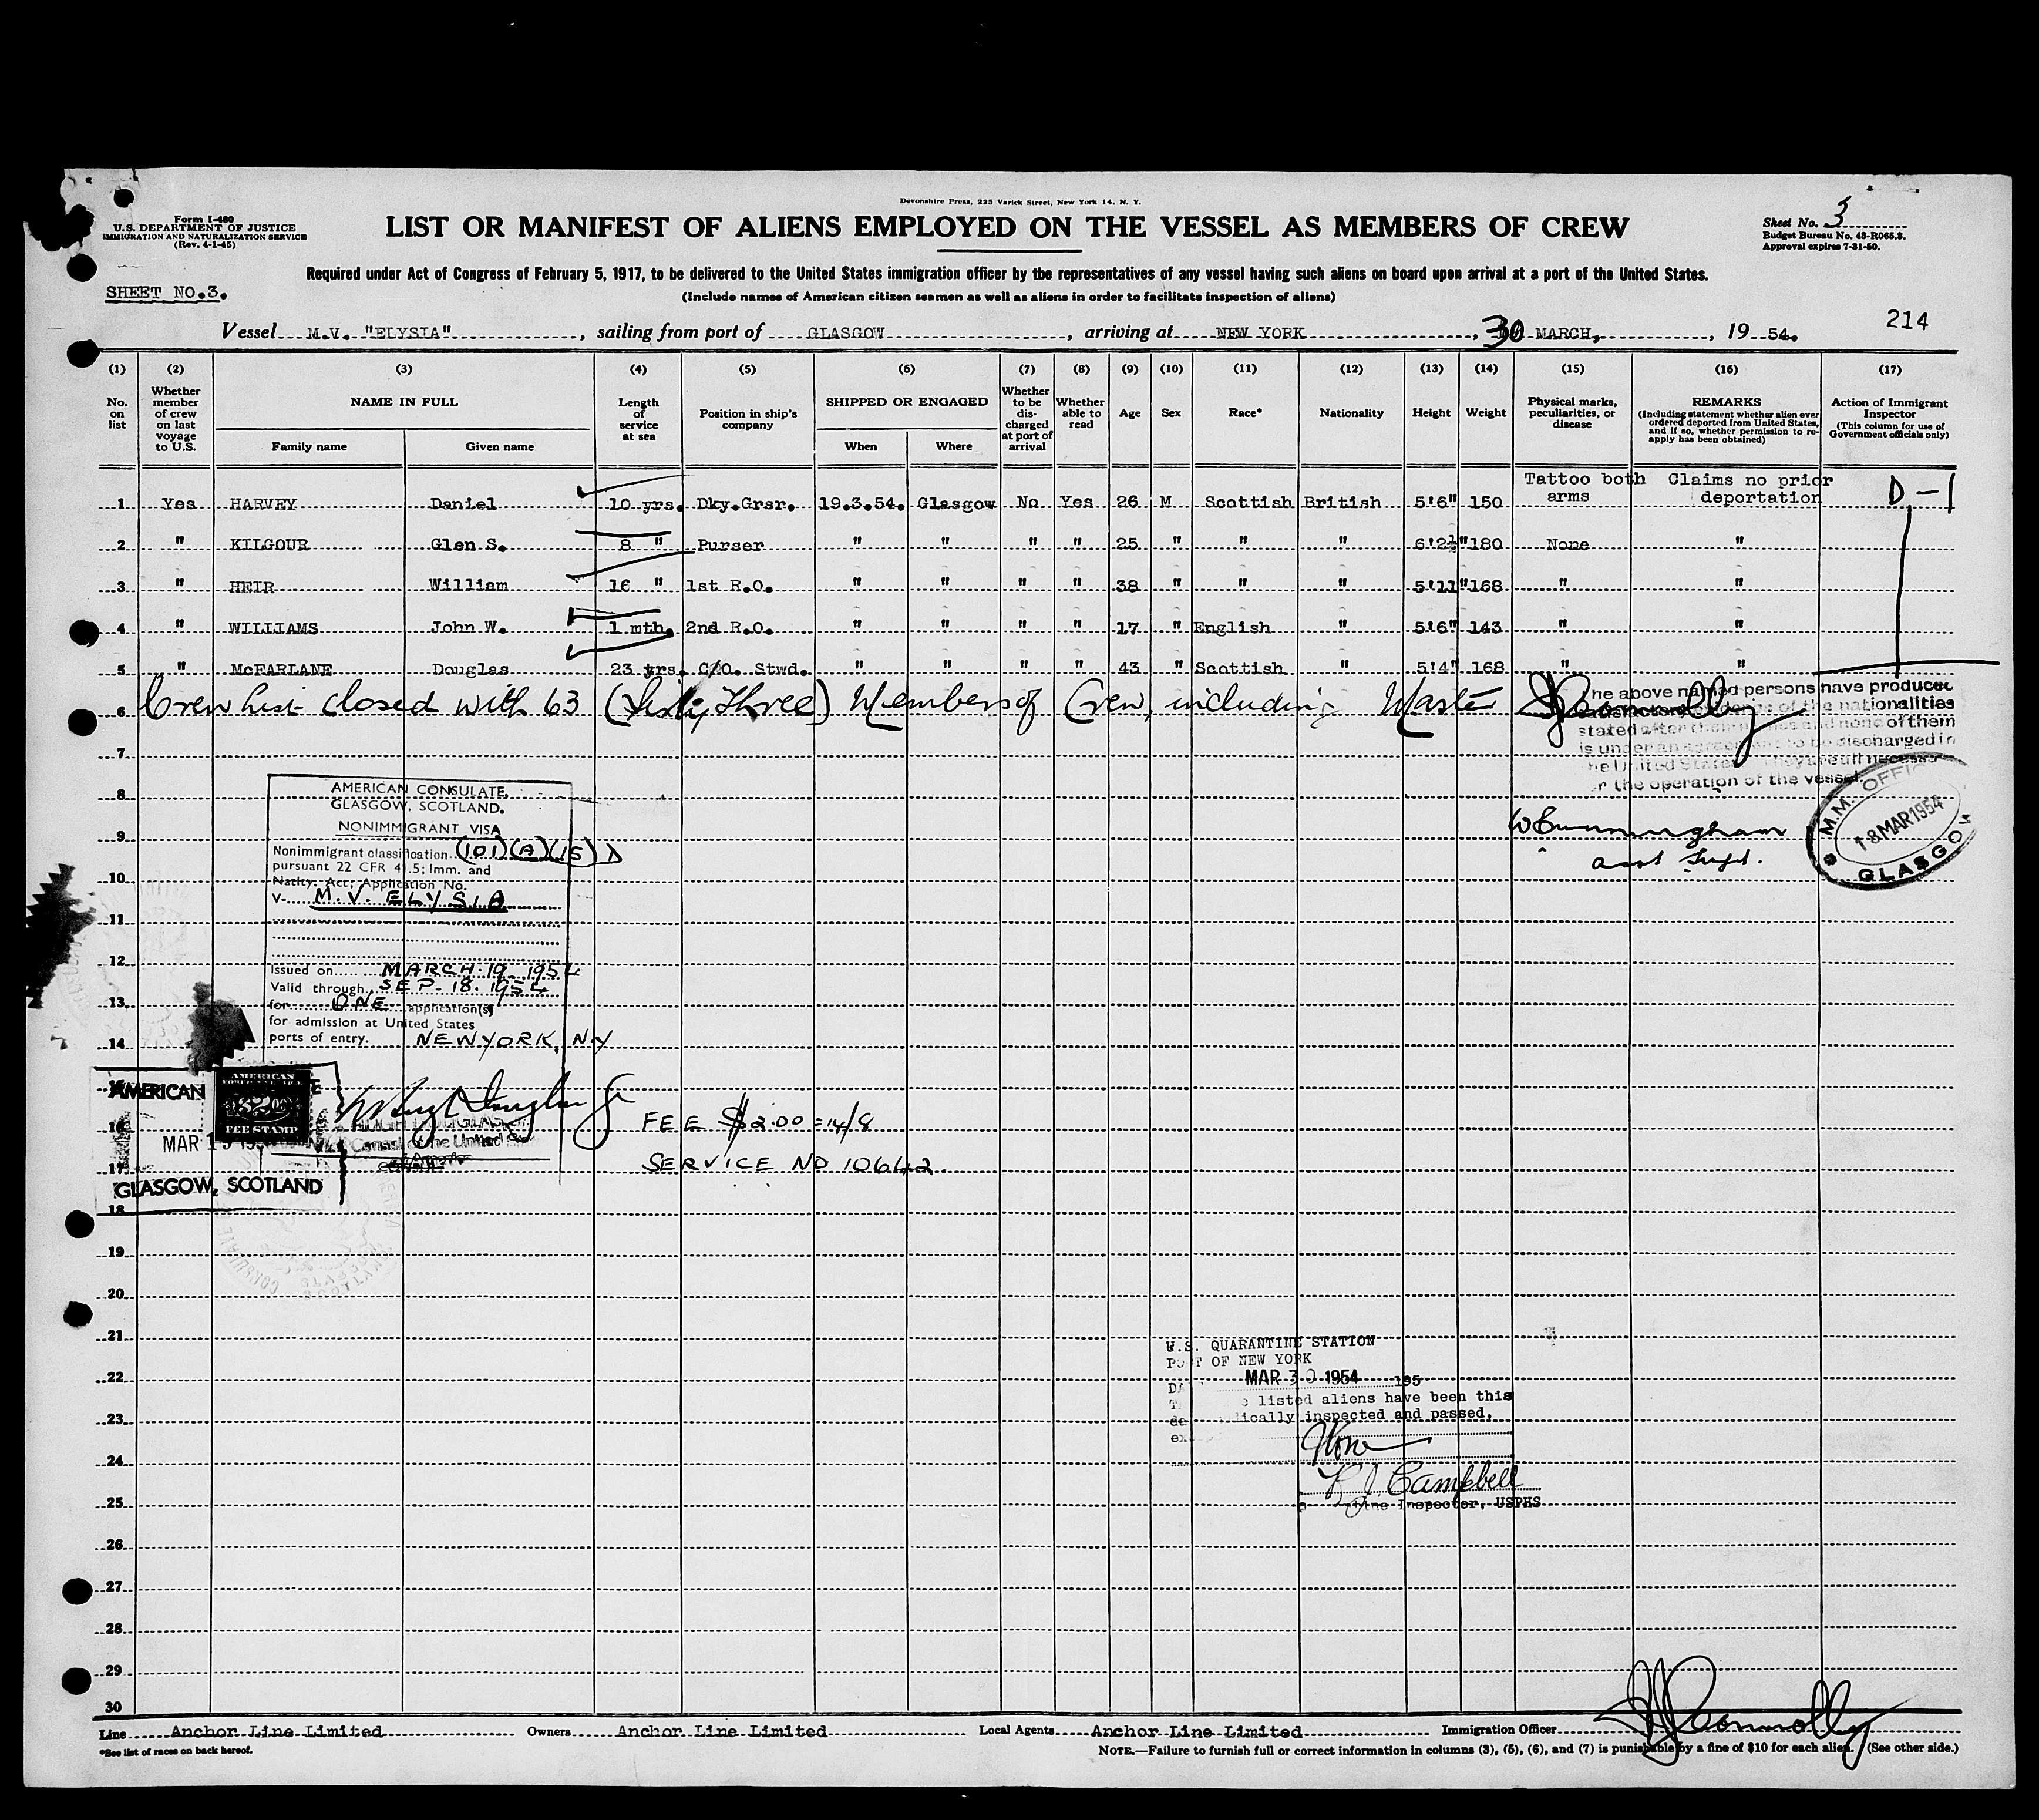 Devonshire Press, 225 Varick Street, New York 14, N. Y.
Form I-480
U.S. DEPARTMENT OF JUSTICE
IMMIGRATION AND NATURALIZATION SERVICE
(Rev. 4-1-45)
LIST OR MANIFEST OF ALIENS EMPLOYED ON THE VESSEL AS MEMBERS OF CREW
Sheet No. 3
Budget Bureau No. 43-R065.3.
Approval expires 7-31-50.
Required under Act of Congress of February 5, 1917, to be delivered to the United States immigration officer by the representatives of any vessel having such aliens on board upon arrival at a port of the United States.
SHEET NO.3.
(Include names of American citizen seamen as well as aliens in order to facilitate inspection of aliens)
214
Vessel M.V. "ELYSIA", sailing from port of GLASGOW, arriving at NEW YORK, 30 MARCH, 1954.
(1) (2) (3) (4) (5) (6) (7) (8) (9) (10) (11) (12) (13) (14) (15) (16) (17)
No. on list
Whether member of crew on last voyage to U.S.
NAME IN FULL
Family name Given name
Length of service at sea
Position in ship's company
SHIPPED OR ENGAGED
When Where
Whether to be discharged at port of arrival
Whether able to read
Age
Sex
Race*
Nationality
Height
Weight
Physical marks, peculiarities, or disease
REMARKS
(Including statement whether alien ever ordered deported from United States, and if so, whether permission to re-apply has been obtained)
Action of Immigrant Inspector
(This column for use of Government officials only)
1 Yes HARVEY Daniel 10 yrs. Dky.Grsr. 19.3.54. Glasgow No Yes 26 M Scottish British 5'6" 150 Tattoo both arms Claims no prior deportation D-1
2 " KILGOUR Glen S. 8 " Purser " " " " 25 " " " 6'2½" 180 None "
3 " HEIR William 16 " 1st R.O. " " " " 38 " " " 5'11" 168 " "
4 " WILLIAMS John W. 1 mth. 2nd R.O. " " " " 17 " English " 5'6" 143 " "
5 " McFARLANE Douglas 23 yrs. C/O. Stwd. " " " " 43 " Scottish " 5'4" 168 " "
6 Crew List closed with 63 (Sixty Three) Members of Crew, including Master
he above named persons have produced
of the nationalities
stated and none of them
is under an agreement to be discharged in
he United States
r the operation of the vessel.
7
8
9
10
11
12
13
14
15
16
17
18
19
20
21
22
23
24
25
26
27
28
29
30
W Cunningham
asst Supt.
M.M. OFFICE
18 MAR 1954
GLASGOW
AMERICAN CONSULATE,
GLASGOW, SCOTLAND.
NONIMMIGRANT VISA
Nonimmigrant classification (101)(A)(15) D
pursuant 22 CFR 41.5; Imm. and
Natlty. Act; Application No.
V- M.V. ELYSIA
Issued on MARCH 19 1954
Valid through SEP. 18. 1954
for ONE application(s)
for admission at United States
ports of entry. NEW YORK, N.Y
AMERICAN
AMERICAN
$2.00
FEE STAMP
HUGH DOUGLAS
Consul of the United
GLASGOW, SCOTLAND
FEE $2.00 = 14/8
SERVICE NO 10642
U.S. QUARANTINE STATION
PORT OF NEW YORK
MAR 30 1954 195
listed aliens have been this
inspected and passed,
None
Campbell
Inspector, USPHS
Line Anchor Line Limited Owners Anchor Line Limited Local Agents Anchor Line Limited Immigration Officer
*See list of races on back hereof.
NOTE.—Failure to furnish full or correct information in columns (3), (5), (6), and (7) is punishable by a fine of $10 for each alien. (See other side.)